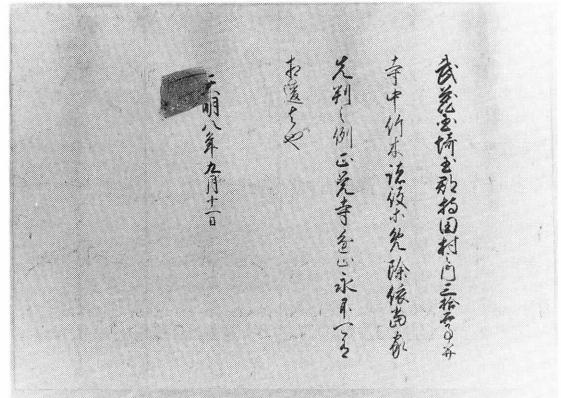 武蔵国埼玉郡持田村之内三拾石事并
寺中竹木諸役等免除依当家
先判之例正覚寺進止永不可有
相違者也
天明八年九月十一日